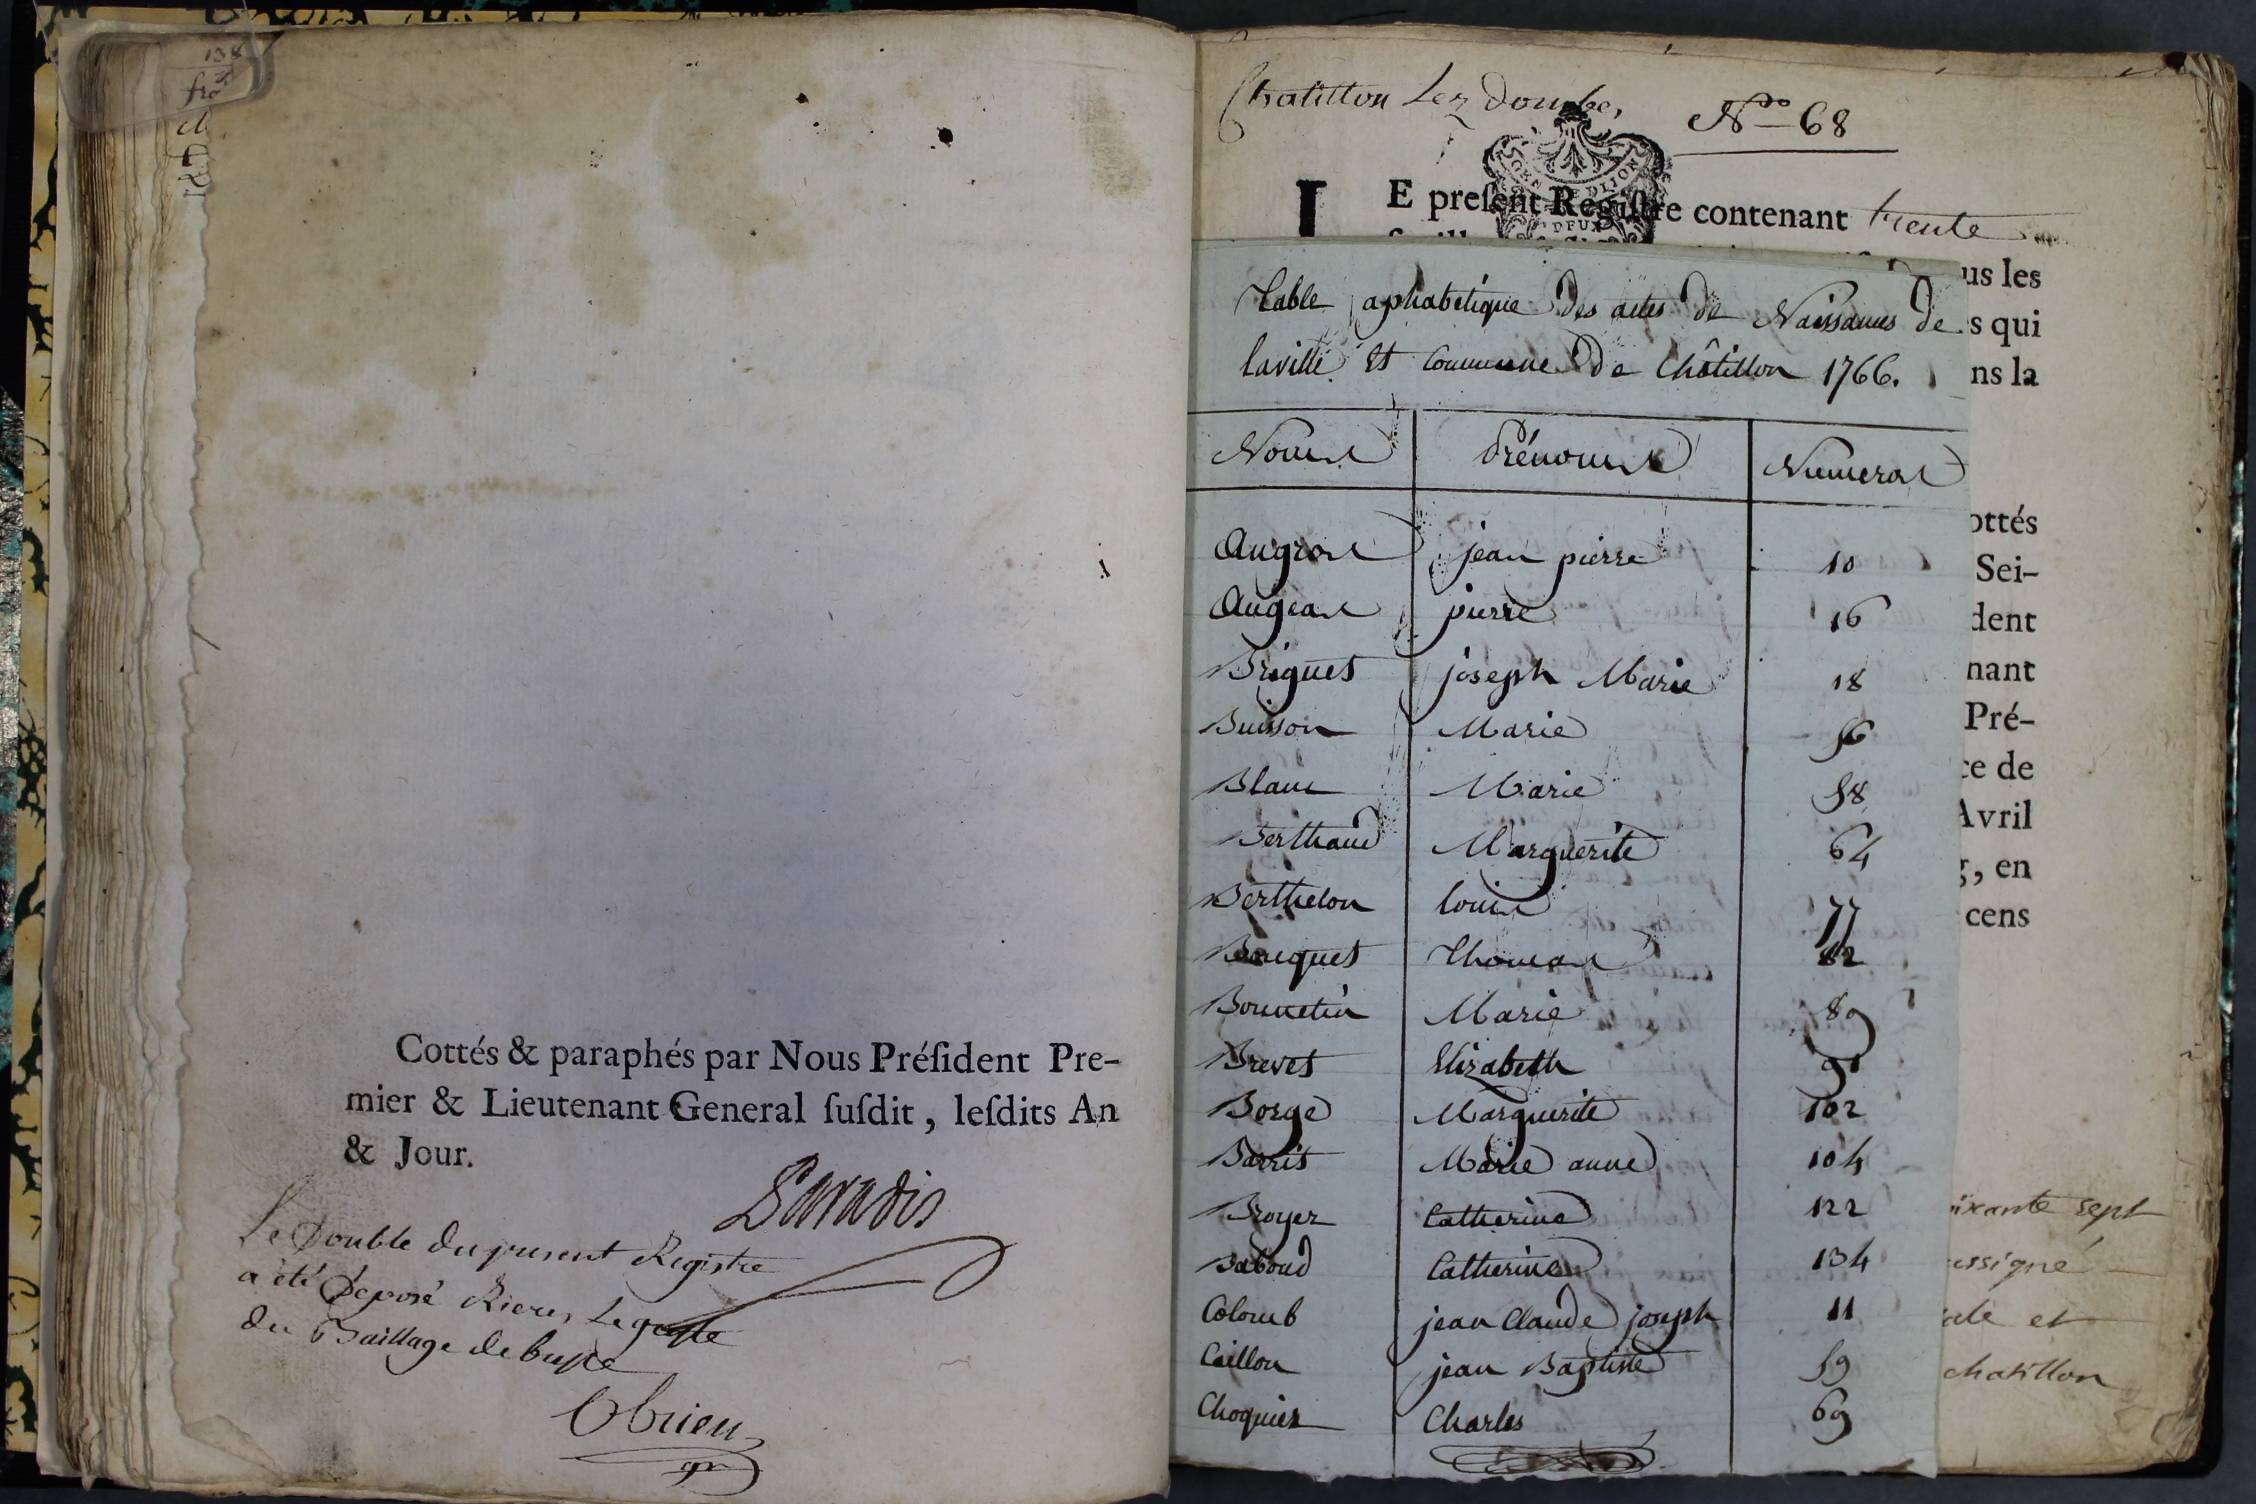 138
Cottés & paraphés par Nous Préſident Pre-
mier & Lieutenant General ſuſdit, leſdits An
& Jour.
Paradis
Le Double du present Registre
a été Déposé Riere Le greffe
du Baillage de bresse
Obrien
Chatillon Lez Dombe,
No 68
LE preſent Regiſtre contenant trente
us les
Table aphabetique des actes de Naissances de
s qui
la ville Et Commune De Châtillon 1766.
ns la
Noms Prénoms Numeros
Augros jean pierre 10
ottés
Sei-
Augras pierre 16
dent
Briguet joseph Marie 18
nant
Buisson Marie 56
Pré-
Blanc Marie 58
ce de
Berthaud Marguerite 64
Avril
Berthelon louis 77
g, en
Bouquet Thomas 82
cens
Bonnetin Marie 89
Brevet Elizabeth 91
Borge Marguerite 102
Barrit Marie anne 104
Broyer Catherine 122
oixante sept
Baboud Catherine 134
ussigné
Colomb jean Claude joseph 11
ale et
Caillon jean Baptiste 59
chatillon
Choquier Charles 69